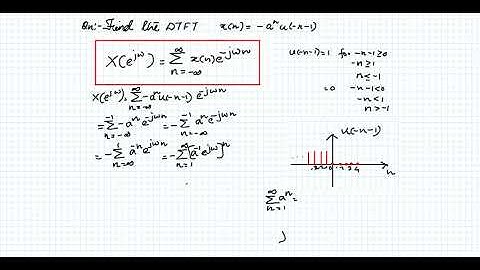 Qn:- Find the DTFT x(n) = -aⁿ u(-n-1)
X(e^{jω}) = ∑_{n=-∞}^{∞} x(n) e^{-jωn}
X(e^{jω}) = ∑_{n=-∞}^{∞} -aⁿ u(-n-1) e^{-jωn}
= ∑_{n=-∞}^{-1} -aⁿ e^{-jωn} = -∑_{n=-∞}^{-1} aⁿ e^{-jωn}
= -∑_{n=∞}^{1} a^{-n} e^{jωn} = -∑_{n=1}^{∞} [a^{-1} e^{jω}]^n
u(-n-1) = 1 for -n-1 ≥ 0
-n ≥ 1
n ≤ -1
= 0 -n-1 < 0
-n < 1
n > -1
u(-n-1)
n
∑_{n=1}^{∞} aⁿ =